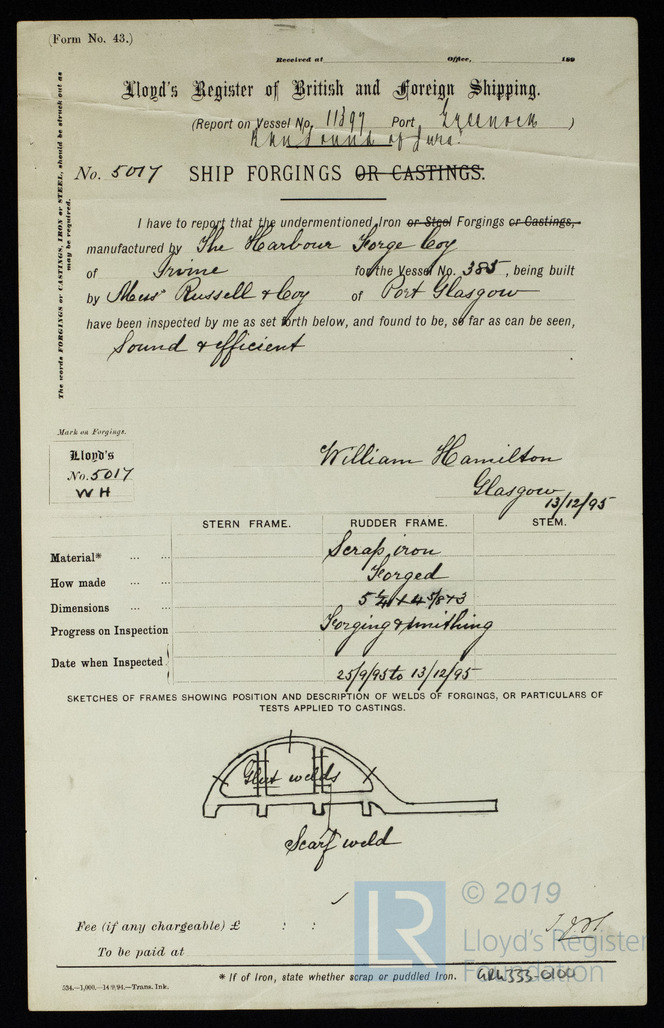 (Form No. 43.)
Received at Office, 189
Lloyd's Register of British and Foreign Shipping.
(Report on Vessel No. 11397 Port Greenock )
Sound of Jura
The words FORGINGS or CASTINGS, IRON or STEEL, should be struck out as may be required.
No. 5017 SHIP FORGINGS OR CASTINGS.
I have to report that the undermentioned Iron or Steel Forgings or Castings,
manufactured by The Harbour Forge Coy
of Irvine for the Vessel No. 385, being built
by Messrs Russell & Coy of Port Glasgow
have been inspected by me as set forth below, and found to be, so far as can be seen,
Sound & efficient
Mark on Forgings.
Lloyd's
No. 5017
WH
William Hamilton
Glasgow
13/12/95
STERN FRAME. RUDDER FRAME. STEM.
Material* ... ... Scrap iron
How made ... Forged
Dimensions ... 5 1/4 + 4 5/8 + 3
Progress on Inspection Forging & smithing
Date when Inspected 25/9/95 to 13/12/95
SKETCHES OF FRAMES SHOWING POSITION AND DESCRIPTION OF WELDS OF FORGINGS, OR PARTICULARS OF
TESTS APPLIED TO CASTINGS.
Glut welds
Scarf weld
Fee (if any chargeable) £ : :
To be paid at
* If of Iron, state whether scrap or puddled Iron.
534.—1,000.—14/9/94.—Trans. Ink.
LR
© 2019
Lloyd's Register
Foundation
GRK333-0100